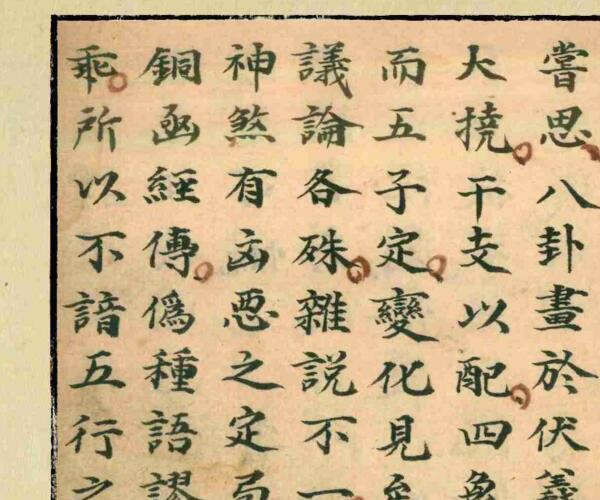 嘗思八卦畫於伏羲
大撓干支以配四
而五子定變化見
議論各硃雜說不一
神煞有凶悪之定局
銅凾經傳偽種語謬
乖所以不諳五行之